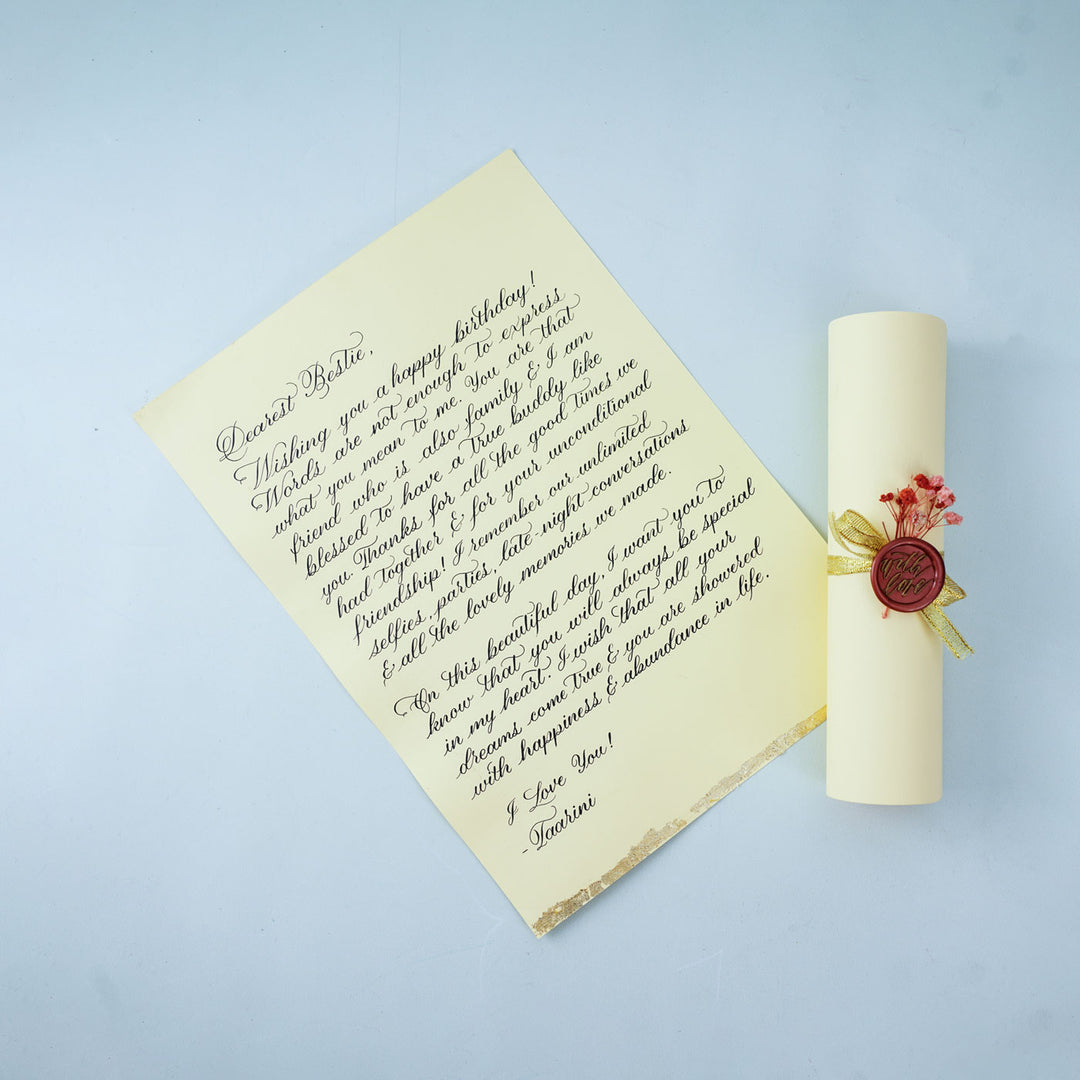 Dearest Bestie,
Wishing you a happy birthday!
Words are not enough to express
what you mean to me. You are that
friend who is also family & I am
blessed to have a true buddy like
you. Thanks for all the good times we
had together & for your unconditional
friendship! I remember our unlimited
selfies, parties, late-night conversations
& all the lovely memories we made.
On this beautiful day, I want you to
know that you will always be special
in my heart. I wish that all your
dreams come true & you are showered
with happiness & abundance in life.
I Love You!
-Taarini
with
love